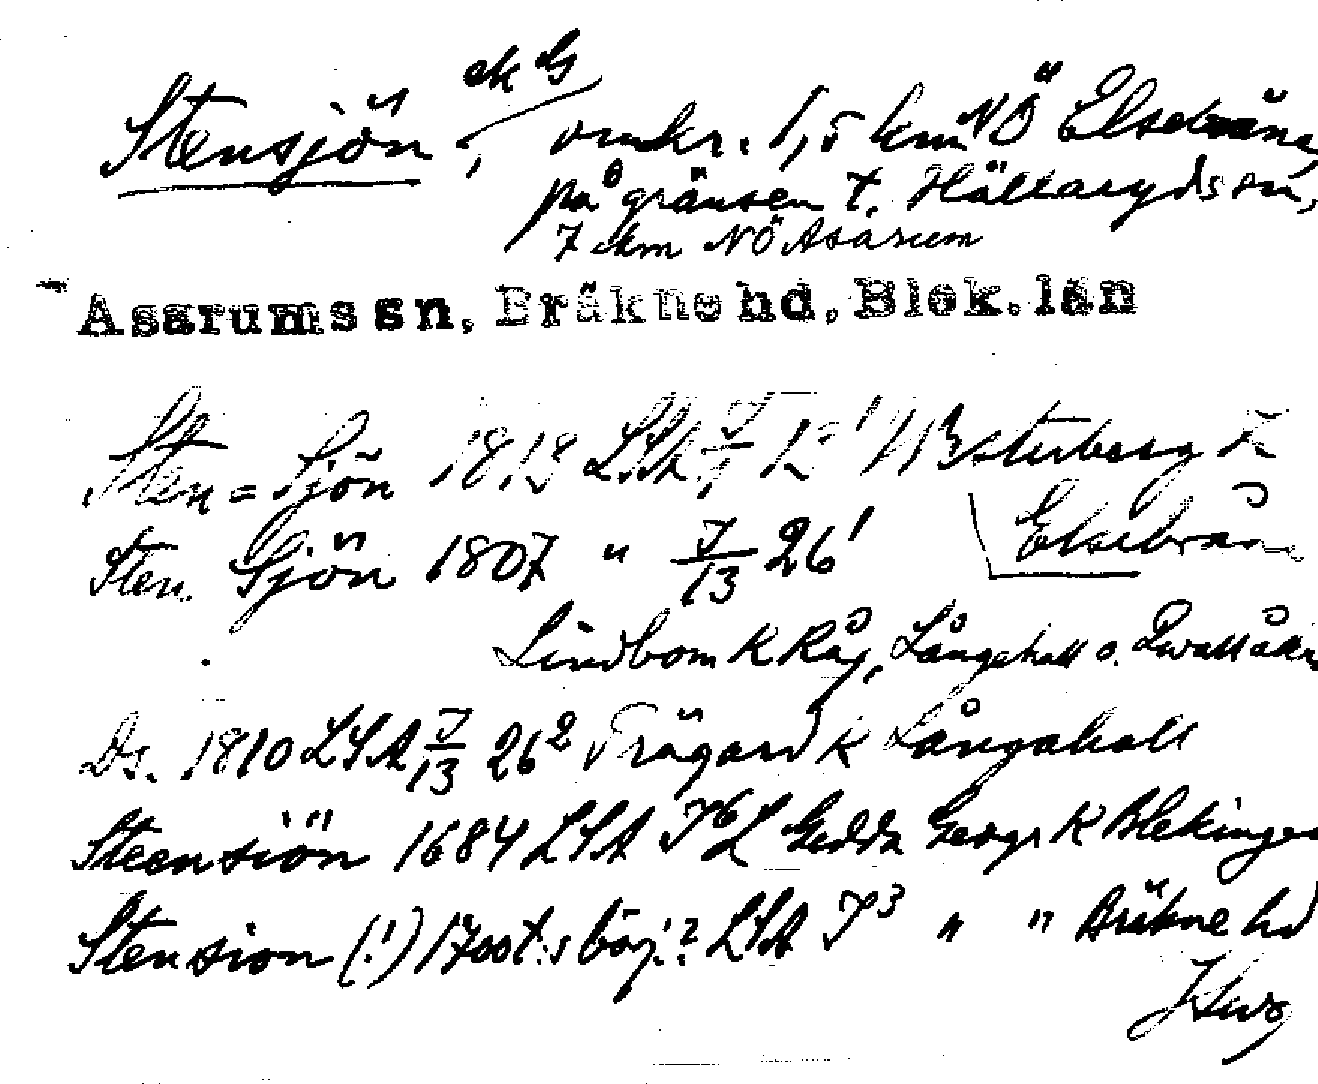 ek G
Stensjön, omkr. 1,5 km NÖ Elsebråne,
på gränsen t. Hällaryds sn,
7 km NÖ Asarum
Asarums sn, Bräkne hd, Blek. län
Sten=Sjön 1818 LSA J/1 12¹ Westerberg K
Elsebråne
Sten Sjön 1807 " J/13 26¹
Lindbom K Råg, Långehall o.
Ds. 1810 LSA J/13 26² Trägård K Långahall
Steensiön 1684 LSA Gedda Georgr K Blekingen
Stension (!) 1700t:s börj.? LSA J³ " " Bräkne hd